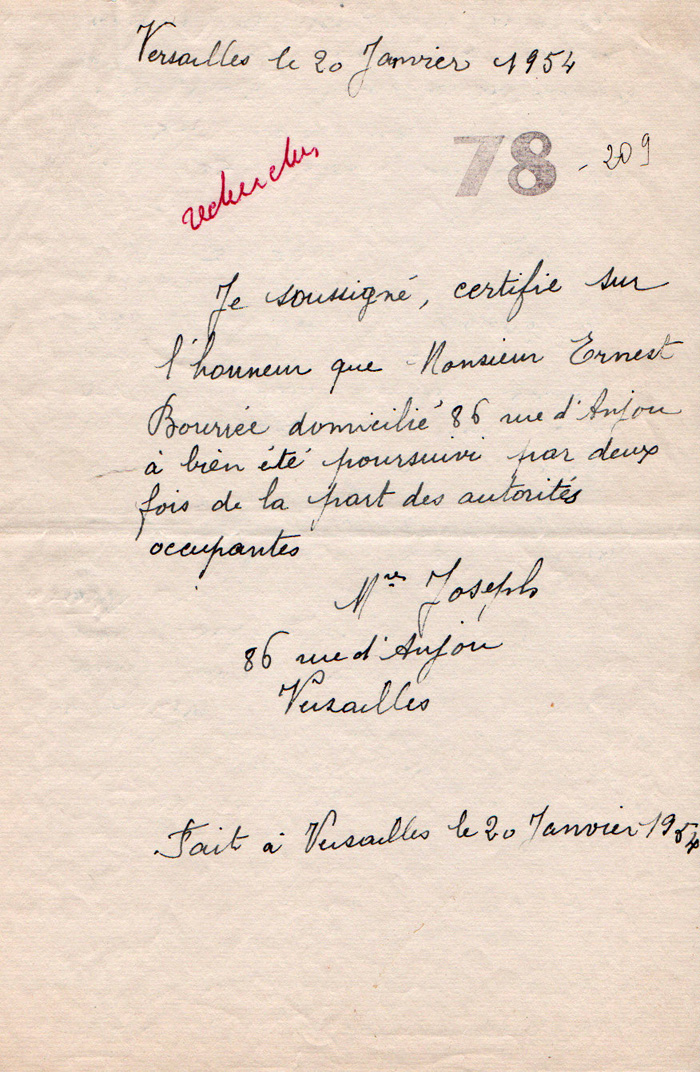 Versailles le 20 Janvier 1954
78 - 209
Je soussigné, certifie sur
l'honneur que Monsieur Ernest
Bourrée domicilié 86 rue d'Anjou
à bien été poursuivi par deux
fois de la part des autorités
occupantes
Joseph
86 rue d'Anjou
Versailles
Fait à Versailles le 20 Janvier 1954